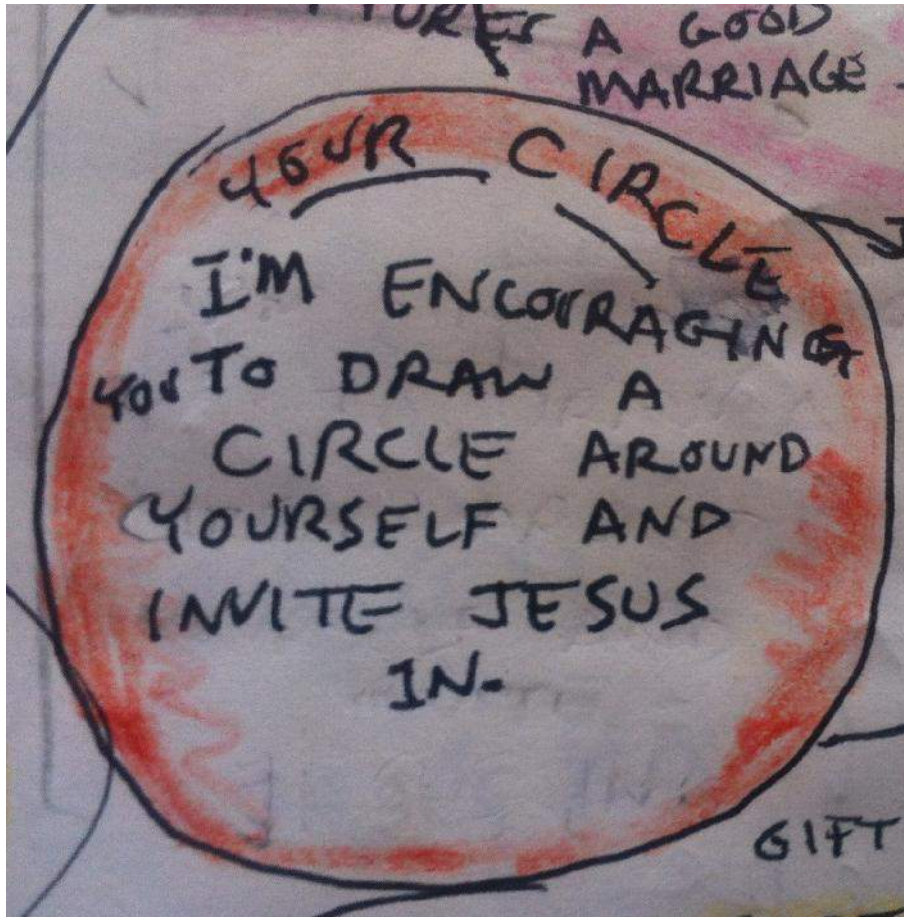 A GOOD
MARRIAGE
YOUR CIRCLE
I'M ENCOURAGING
YOU TO DRAW A
CIRCLE AROUND
YOURSELF AND
INVITE JESUS
IN.
GIFT